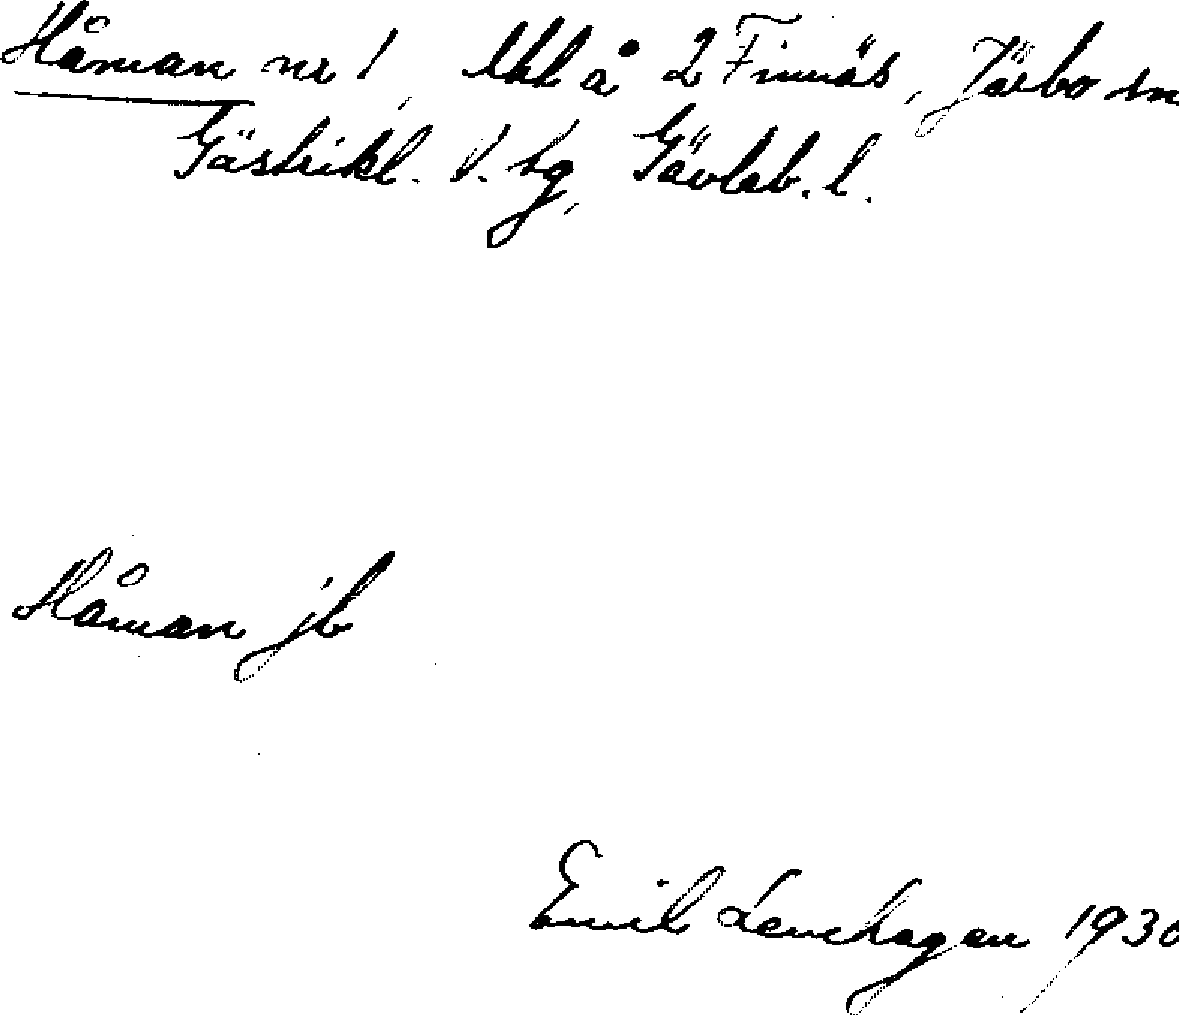 Håman nr 1, lkl å 2 Finnäs, Järbo sn
Gästrikl. V. tg, Gävleb. l.
Håman jb
Emil Lenehagen 1930